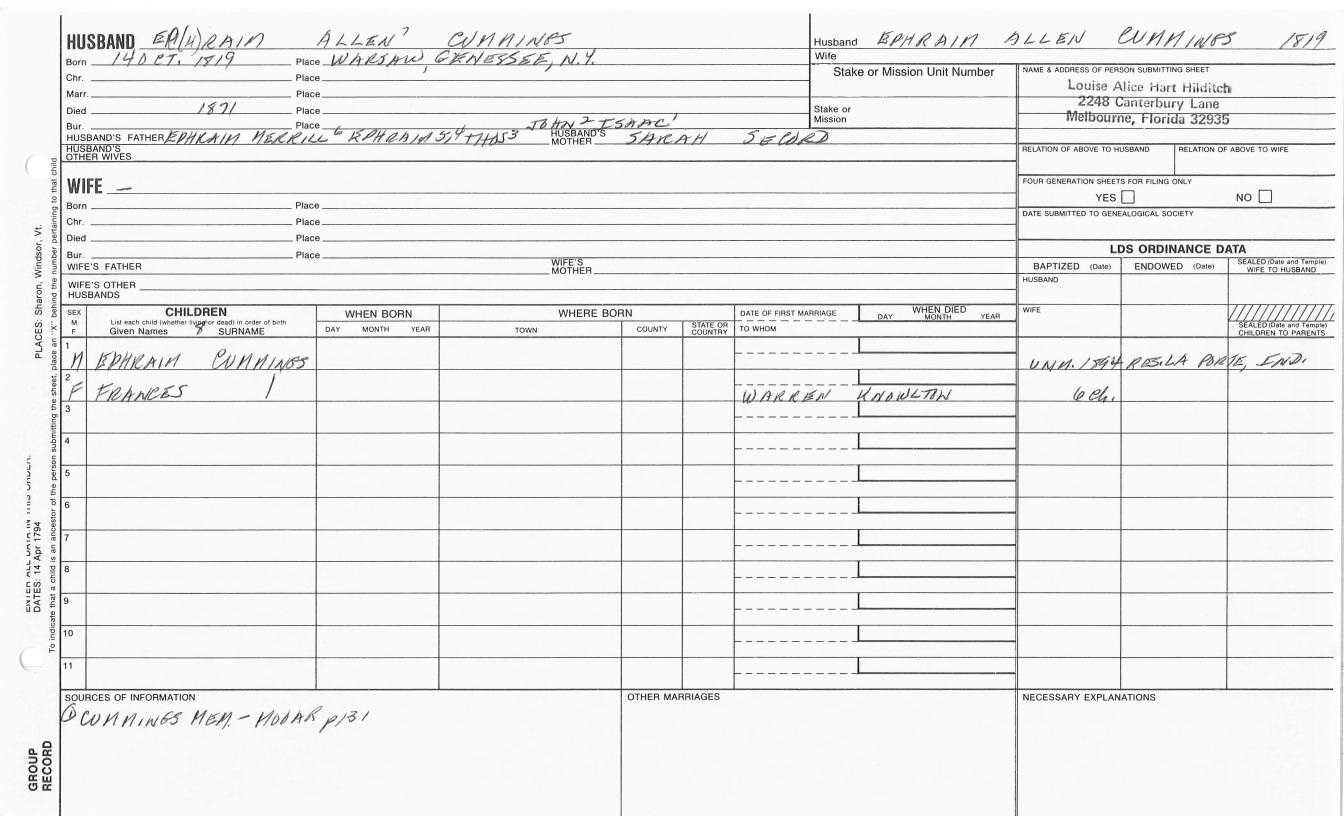 HUSBAND EPH(H)RAIM ALLEN⁷ CUMMINGS
Born 14 OCT. 1819 Place WARSAW, GENESSEE, N.Y.
Chr. Place
Marr. Place
Died 1871 Place
Bur. Place JOHN² ISAAC¹
HUSBAND'S FATHER EPHRAIM MERRILL⁶ EPHRAIM⁵,⁴ THOS³ HUSBAND'S MOTHER SARAH SECORD
HUSBAND'S OTHER WIVES
Husband EPHRAIM ALLEN CUMMINGS 1819
Wife
Stake or Mission Unit Number
Stake or Mission
NAME & ADDRESS OF PERSON SUBMITTING SHEET
Louise Alice Hart Hilditch
2248 Canterbury Lane
Melbourne, Florida 32935
RELATION OF ABOVE TO HUSBAND RELATION OF ABOVE TO WIFE
FOUR GENERATION SHEETS FOR FILING ONLY
YES NO
DATE SUBMITTED TO GENEALOGICAL SOCIETY
WIFE —
Born Place
Chr. Place
Died Place
Bur. Place
WIFE'S FATHER WIFE'S MOTHER
WIFE'S OTHER HUSBANDS
LDS ORDINANCE DATA
BAPTIZED (Date) ENDOWED (Date) SEALED (Date and Temple) WIFE TO HUSBAND
HUSBAND
WIFE
SEALED (Date and Temple) CHILDREN TO PARENTS
SEX M F
CHILDREN
List each child (whether living or dead) in order of birth
Given Names 8 SURNAME
WHEN BORN
DAY MONTH YEAR
WHERE BORN
TOWN COUNTY STATE OR COUNTRY
DATE OF FIRST MARRIAGE
TO WHOM
WHEN DIED
DAY MONTH YEAR
1 M EPHRAIM CUMMINGS UNM. 1894 RES. LA PORTE, IND.
2 F FRANCES WARREN KNOWLTON 6 Ch.
3
4
5
6
7
8
9
10
11
SOURCES OF INFORMATION
① CUMMINGS MEM. - MOOAR p131
OTHER MARRIAGES
NECESSARY EXPLANATIONS
GROUP RECORD
ENTER ALL DATA IN THIS ORDER:
DATES: 14 Apr 1794
PLACES: Sharon, Windsor, Vt.
To indicate that a child is an ancestor of the person submitting the sheet, place an "X" behind the number pertaining to that child.